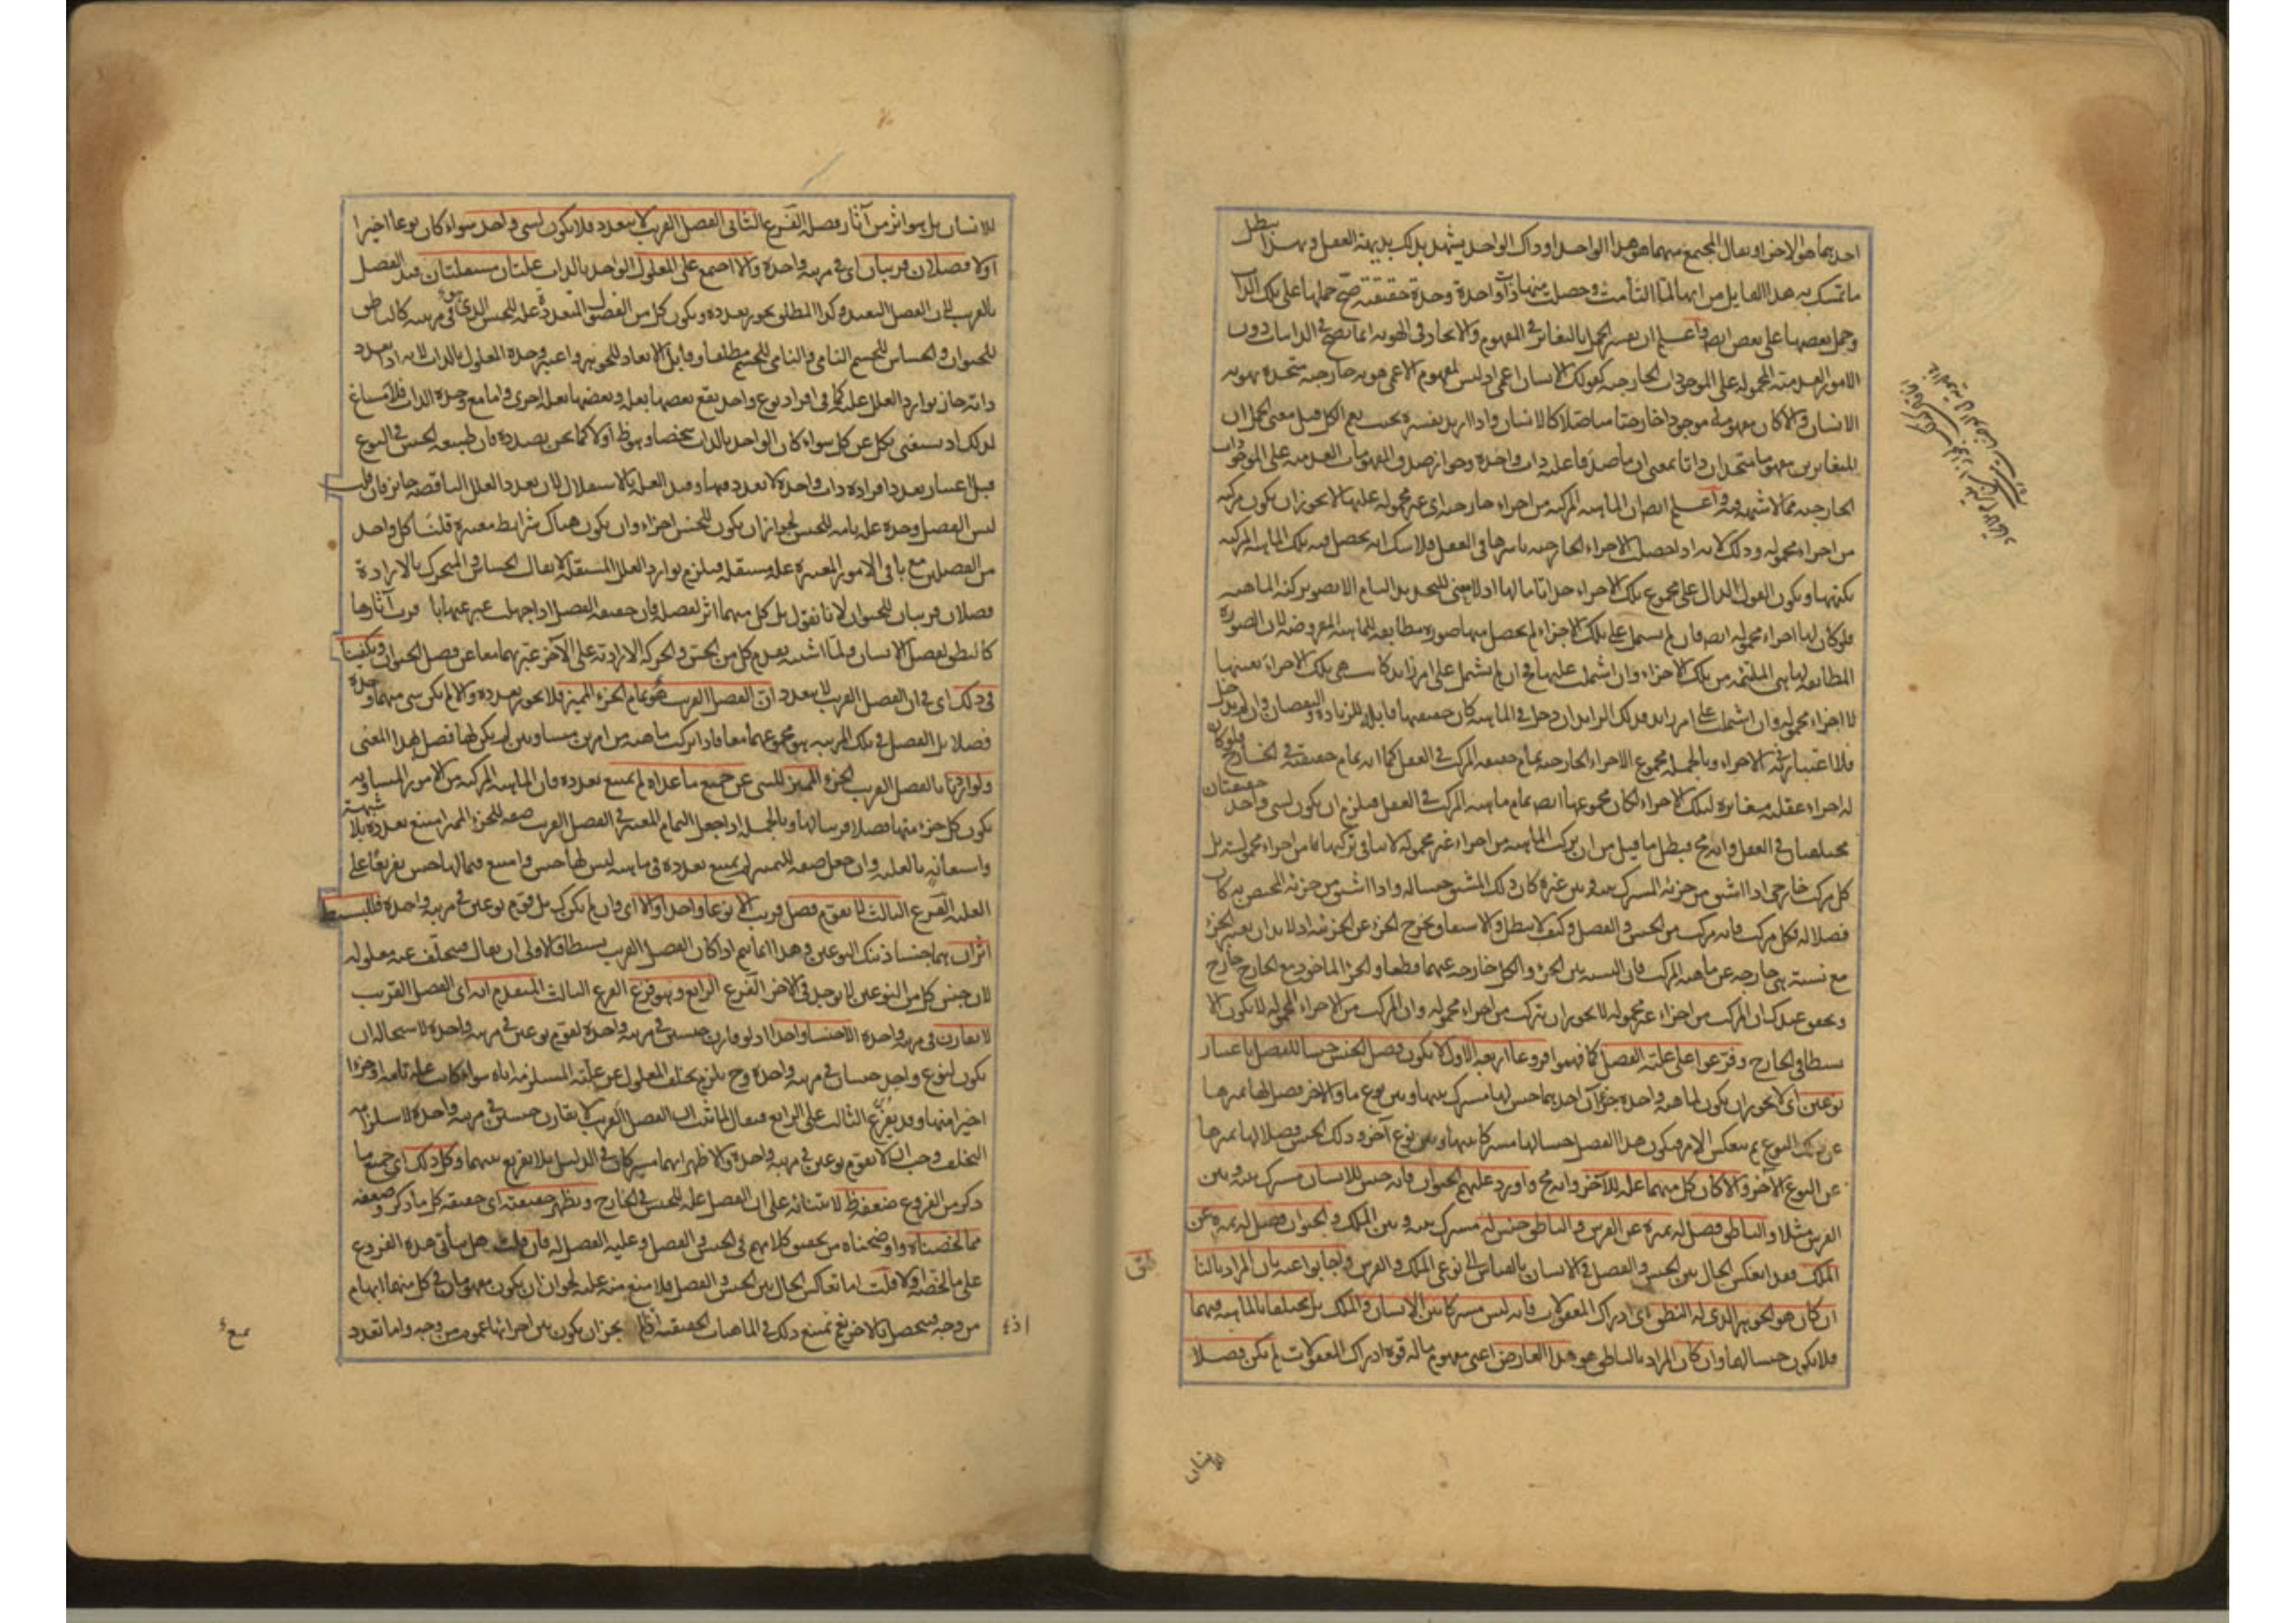 احدهما هو الآخر او يقال المجتمع منهما هو هذا الواحد او ذاك الواحد يشهد بذلك بديهة العقل وبهذا يبطل
ما تمسك به هذا القايل من انها لما التأمت وحصلت منها ذات واحدة وحدة حقيقية صح حملها على تلك الذات
وحمل بعضها على بعض ايضا واعلم ان تفسير الحمل بالتغاير في المفهوم والاتحاد في الهوية انما يصح في الذاتيات دون
الامور العدمية المحمولة على الموجودات الخارجية كقولك الانسان اعمى اذ ليس لمفهوم الاعمى هوية خارجية متحدة بهوية
الانسان والا كان مفهومه موجودا خارجيا متاصلا كالانسان واذا اريد تفسيره بحيث يعم الكل قيل معنى الحمل ان
المتغايرين مفهوما متحدان ذاتا بمعنى ان ما صدقا عليه ذات واحدة وجواز صدق المفهومات العدمية على الموجودات
الخارجية مما لا شبهة فيه واعلم ايضا ان الماهية المركبة من اجزاء خارجية اى غير محمولة عليها لا يجوز ان يكون مركبة
من اجزاء محمولة وذلك لانه اذا حصلت الاجزاء الخارجية باسرها في العقل فلا شك انه يحصل فيه تلك الماهية المركبة
بكنهها ويكون القول الدال على مجموع تلك الاجزاء حدا تاما لها اذ لا معنى للتحديد التام الا تصوير كنه الماهية
فلو كان لها اجزاء محمولة ايضا فان لم يشتمل على تلك الاجزاء لم يحصل منها صورة مطابقة للماهية المفروضة لان الصورة
المطابقة لها هى الملتئمة من تلك الاجزاء وان اشتملت عليها فح ان لم يشتمل على امر زايد كانت هى تلك الاجزاء بعينها
لا اجزاء محمولة وان اشتملت على امر زايد فذلك الزايد ان دخل في الماهية كان حقيقتها قابلة للزيادة والنقصان وان لم يدخل
فلا اعتبار به في الاجزاء وبالجملة مجموع الاجزاء الخارجية تمام حقيقة المركب في العقل كما انه تمام حقيقته في الخارج فلو كان
له اجزاء عقلية مغايرة لتلك الاجزاء لكان مجموعها ايضا تمام ماهية المركب في العقل فيلزم ان يكون لشى واحد حقيقتان
مختلفتان في العقل وانه مح فبطل ما قيل من ان تركب الماهية من اجزاء غير محمولة لا ينافى تركبها من اجزاء محمولة بل
كل مركب خارجى اذا اشتق من جزئه المشترك بينه وبين غيره كان ذلك المشتق جنسا له واذا اشتق من جزئه المختص به كان
فصلا له فكل مركب فانه مركب من الجنس والفصل وكيف لا يبطل والاشتقاق يخرج الجزء عن الجزئية اذ لا بد ان يعتبر الجزء
مع نسبة هى خارجة عن ماهية المركب فان النسبة بين الجزء والكل خارجة عنهما قطعا والجزء الماخوذ مع الخارج خارج
وتحقق عندك ان المركب من اجزاء غير محمولة لا يجوز ان يتركب من اجزاء محمولة وان المركب من الاجزاء المحمولة لا يكون الا
بسيطا في الخارج وفرعوا على علية الفصل كما فهموا فروعا اربعة الاول لا يكون فصل الجنس جنسا للفصل باعتبار
نوعين اى لا يجوز ان يكون لماهية واحدة جزآن احدهما جنس لها مشترك بينها وبين نوع ما والآخر فصل لها يميزها
عن ذلك النوع ثم ينعكس الامر فيكون هذا الفصل جنسا لها مشتركا بينها وبين نوع آخر وذلك الجنس فصلا لها يميزها
عن النوع الآخر والا كان كل منهما علة للآخر وانه مح واورد عليهم الحيوان فانه جنس للانسان مشترك بينه وبين
الفرس مثلا والناطق فصل له يميزه عن الفرس والناطق جنس له مشترك بينه وبين الملك والحيوان فصل له يميزه عن
الملك فقد انعكس الحال بين الجنس والفصل في الانسان بالقياس الى نوعى الملك والفرس واجابوا عنه بان المراد بالنا
طق
ان كان هو الجوهر الذى له النطق اى ادراك المعقولات فانه ليس مشتركا بين الانسان والملك بل يختلفان بالماهية فيهما
فلا يكون جنسا لهما وان كان المراد بالناطق هو هذا العارض اعنى مفهوم ماله قوة ادراك المعقولات لم يكن فصلا
للانسان
للانسان بل هو اثر من آثار فصله الفرع الثانى الفصل القريب لا يتعدد فلا يكون لشى واحد سواء كان نوعا اخيرا
اولا فصلان قريبان اى في مرتبة واحدة والا اجتمع على المعلول الواحد بالذات علتان مستقلتان قيد الفصل
بالقريب لان الفصل البعيد وكذا المطلق يجوز تعدده ويكون كل من الفصول المتعددة علة للجنس الذى هو في مرتبته كالناطق
للحيوان والحساس للجسم النامى والنامى للجسم مطلقا وقابل الابعاد للجوهر واعتبر وحدة المعلول بالذات لانه اذا تعدد
ذاته جاز توارد العلل عليه كما في افراد نوع واحد يقع بعضها بعلة وبعضها بعلة اخرى واما مع وحدة الذات فلا مساغ
لذلك اذ يستغنى بكل عن كل سواء كان الواحد بالذات شخصا وهو ظ او لا كما نحن بصدده فان طبيعة الجنس في النوع
قبل اعتبار تعدد افراده ذات واحدة لا تعدد فيها وقيد العلية بالاستقلال لان تعدد العلل الناقصة جايز فان قلت
ليس الفصل وحده علة تامة للجنس لجواز ان يكون للجنس اجزاء وان يكون هناك شرائط معتبرة قلنا كل واحد
من الفصلين مع باقى الامور المعتبرة علة مستقلة فيلزم توارد العلل المستقلة لا يقال الحساس والمتحرك بالارادة
فصلان قريبان للحيوان لانا نقول بل كل منهما اثر لفصله فان حقيقة الفصل اذا جهلت عبر عنها باقرب آثارها
كالنطق لفصل الانسان ولما اشتبه تقدم كل من الحس والحركة الارادية على الآخر عبر بهما معا عن فصل الحيوان ويكفينا
في ذلك اى في ان الفصل القريب لا يتعدد ان الفصل القريب هو تمام الجزء المميز فلا يجوز تعدده والا لم يكن شى منهما وحده
فصلا بل الفصل في تلك المرتبة هو مجموعهما معا فاذا تركبت ماهية من امرين متساويين لم يكن لها فصل بهذا المعنى
ولو اريد بالفصل القريب الجزء المميز للشى عن جميع ما عداه لم يمتنع تعدده فان الماهية المركبة من الامور المتساوية
يكون كل جزء منها فصلا قريبا لها وبالجملة اذا جعل التمام المعتبر في الفصل القريب صفة للجزء المميز امتنع تعدده بلا شبهة
واستعانة بالعلية وان جعل صفة للتمييز لم يمتنع تعدده في ماهية ليس لها جنس وامتنع فيما لها جنس تفريعا على
العلية الفرع الثالث لا يقوم فصل قريب الا نوعا واحدا والا اى وان لم يكن كذلك بل قوم نوعين في مرتبة واحدة فللبسيط
اثران هما جنسا ذينك النوعين وهذا انما يتم اذا كان الفصل القريب بسيطا فالاولى ان يقال فيتخلف عنه معلوله
لان جنس كل من النوعين لا يوجد في الآخر الفرع الرابع وهو فرع الفرع الثالث المتقدم انه اى الفصل القريب
لا يقارن في مرتبة واحدة الا جنسا واحدا اذ لو قارن جنسين في مرتبة واحدة لقوم نوعين في مرتبة واحدة لاستحالة ان
يكون لنوع واحد جنسان في مرتبة واحدة وح يلزم تخلف المعلول عن علته المستلزمة اياه سواء كانت علة تامة او جزءا
اخيرا منها وقد يفرع الثالث على الرابع فيقال لما ثبت ان الفصل القريب لا يقارن جنسين في مرتبة واحدة لاستلزامه
التخلف وجب ان لا يقوم نوعين في مرتبة واحدة والاظهر انهما مشتركان في الدليل بلا تفريع بينهما وكل ذلك اى جميع ما
ذكر من الفروع ضعفه ظ لابتنائه على ان الفصل علة للجنس في الخارج ويظهر حقيقته اى حقيقة كل ما ذكر وضعفه
مما لخصناه واوضحناه من تحقيق كلامهم في الجنس والفصل وعلية الفصل له فان قلت هل يتأتى هذه الفروع
على ما لخصته اولا قلت اما تعاكس الحال بين الجنس والفصل فلا منع منه عليه لجواز ان يكون مفهومان في كل منهما ابهام
من وجه فيتحصل بالآخر نعم يمتنع ذلك في الماهيات الحقيقية اذا لم يجز ان يكون بين اجزائها عموم من وجه واما تعدد